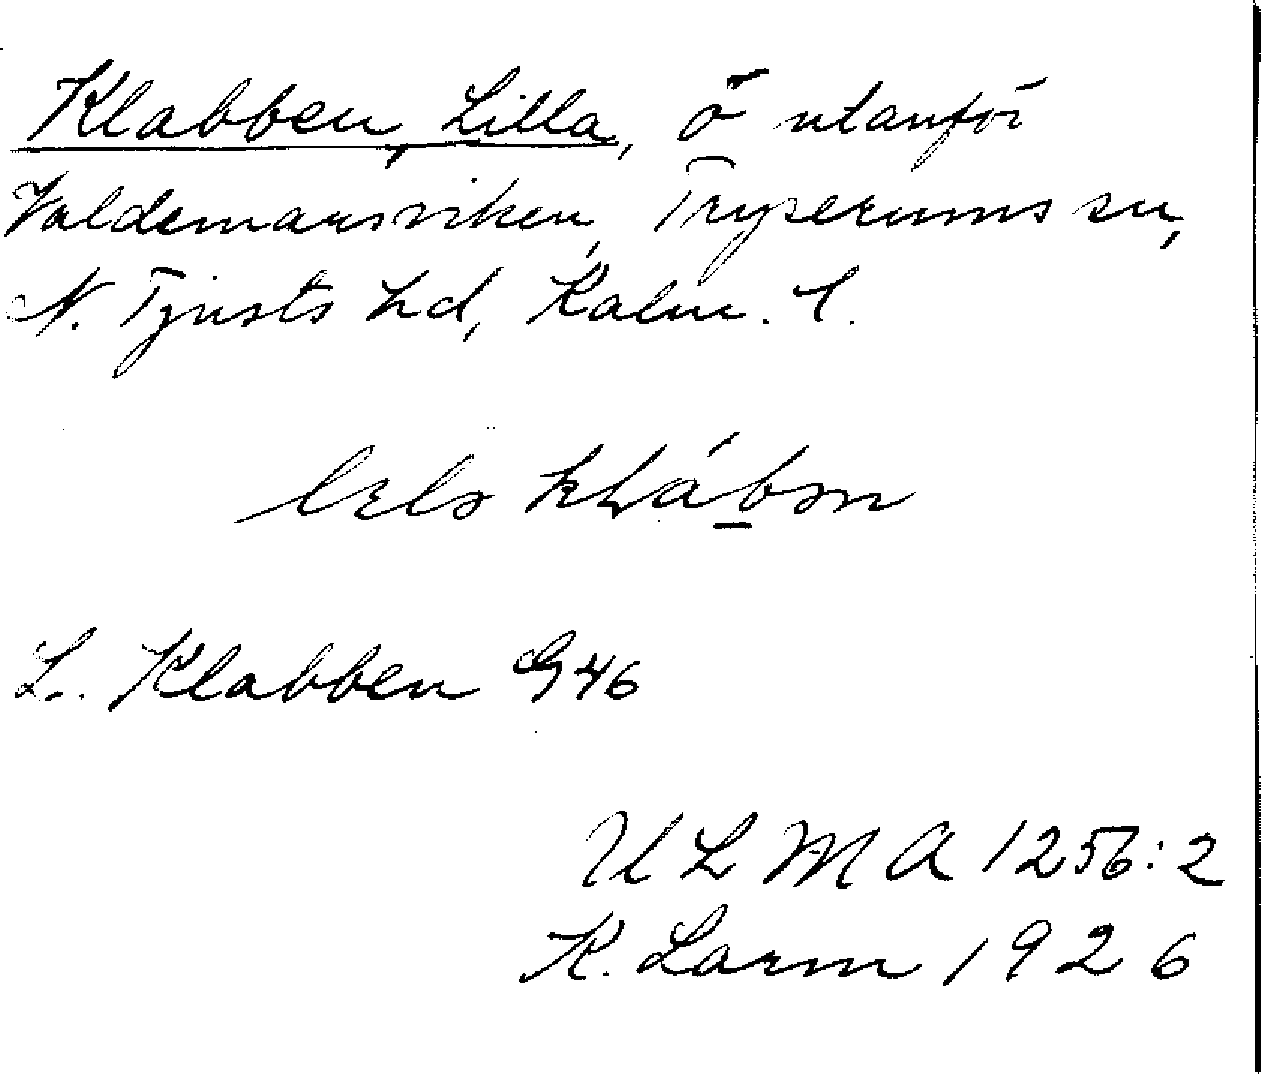 Klabben, Lilla, ö utanför
Valdemarsviken, Tryserums sn,
N. Tjusts hd, Kalm. l.
klábən
L. Klabben G46
ULMA 1256:2
K. Larm 1926